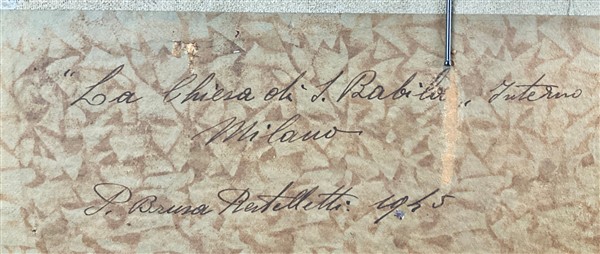 "La Chiesa di S. Babila„ Interno
Milano
P. Brusa Restelletti. 1945